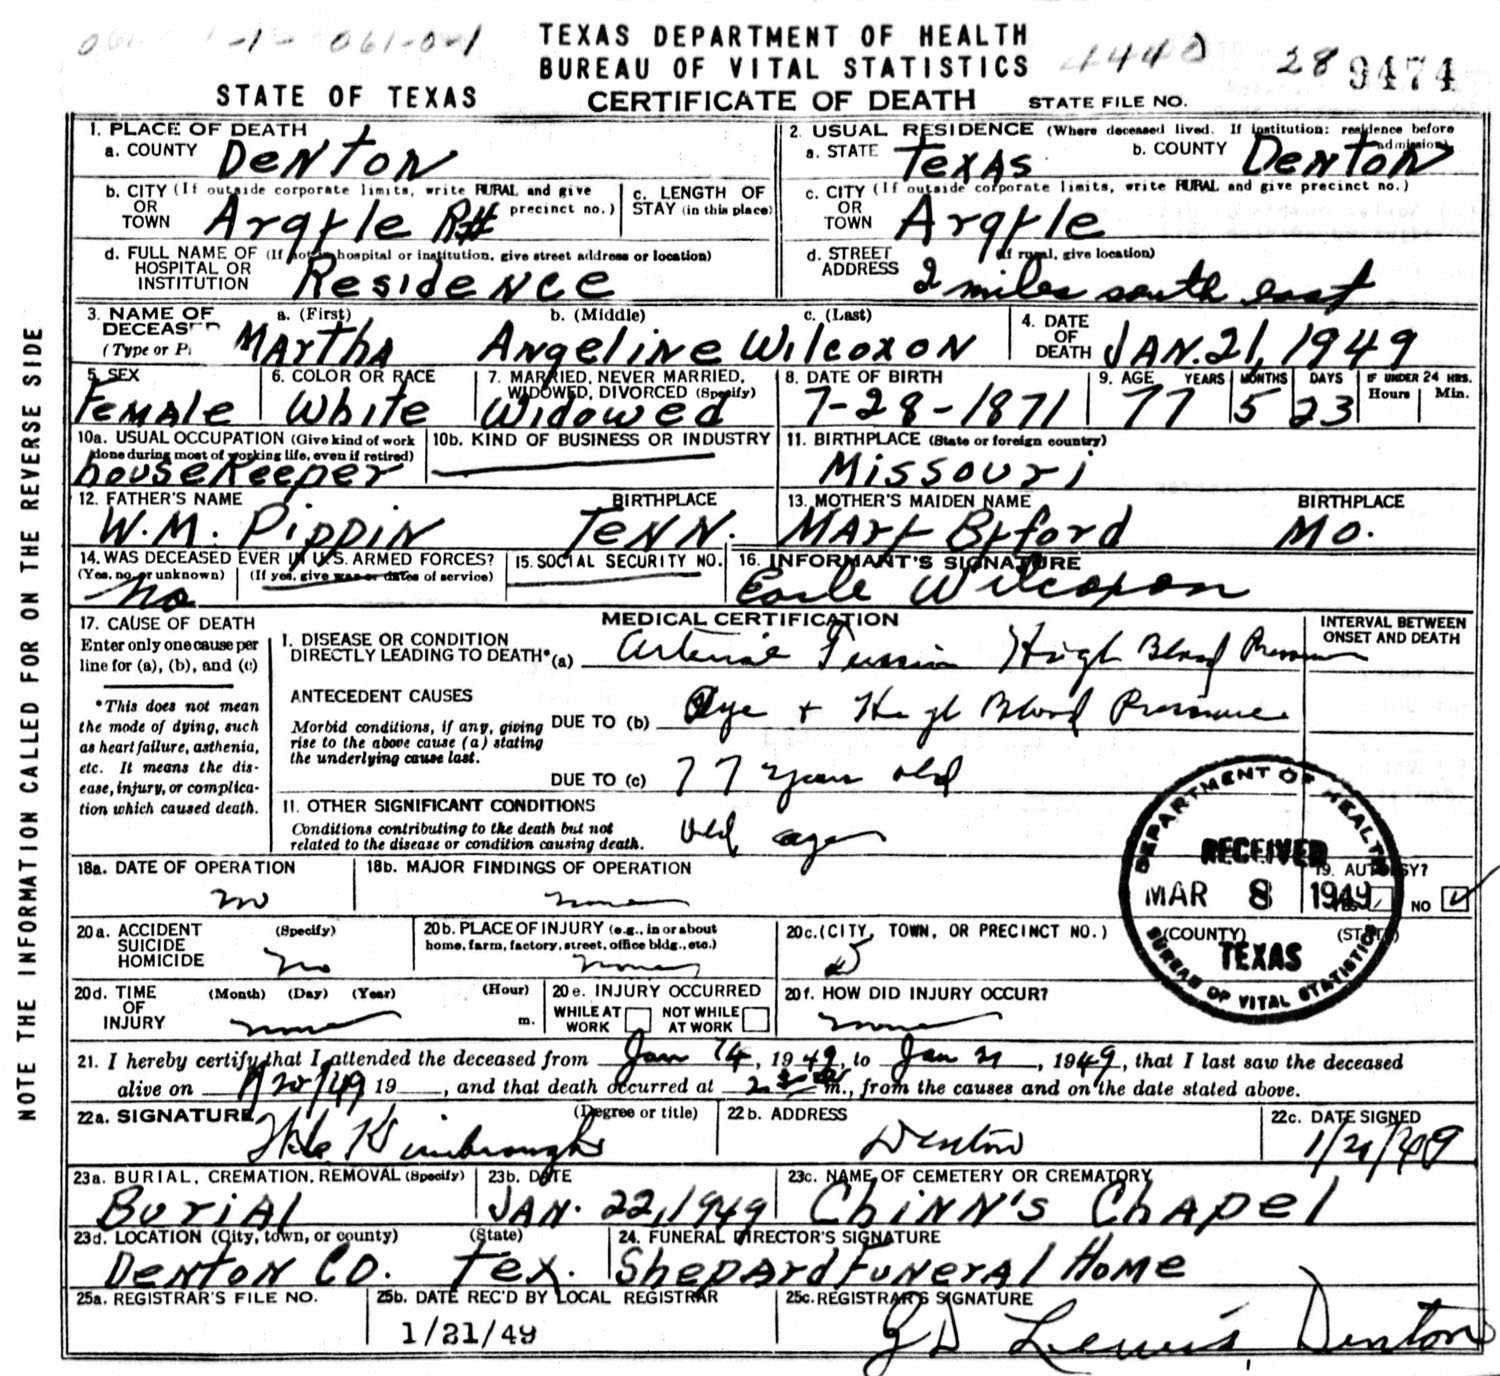 -1- 061-0-1
TEXAS DEPARTMENT OF HEALTH
BUREAU OF VITAL STATISTICS
4440 28 9474
STATE OF TEXAS CERTIFICATE OF DEATH STATE FILE NO.
NOTE THE INFORMATION CALLED FOR ON THE REVERSE SIDE
1. PLACE OF DEATH
a. COUNTY Denton
2. USUAL RESIDENCE (Where deceased lived. If institution: residence before admission)
a. STATE Texas b. COUNTY Denton
b. CITY (If outside corporate limits, write RURAL and give precinct no.)
OR
TOWN Argyle R#
c. LENGTH OF
STAY (in this place)
c. CITY (If outside corporate limits, write RURAL and give precinct no.)
OR
TOWN Argyle
d. FULL NAME OF (If not in hospital or institution, give street address or location)
HOSPITAL OR
INSTITUTION Residence
d. STREET (If rural, give location)
ADDRESS 2 miles south east
3. NAME OF DECEASED a. (First) b. (Middle) c. (Last)
(Type or P Martha Angeline Wilcoxon
4. DATE
OF
DEATH JAN. 21, 1949
5. SEX Female
6. COLOR OR RACE White
7. MARRIED, NEVER MARRIED,
WIDOWED, DIVORCED (Specify) Widowed
8. DATE OF BIRTH 7-28-1871
9. AGE YEARS 77 MONTHS 5 DAYS 23 IF UNDER 24 HRS. Hours Min.
10a. USUAL OCCUPATION (Give kind of work
done during most of working life, even if retired)
housekeeper
10b. KIND OF BUSINESS OR INDUSTRY
11. BIRTHPLACE (State or foreign country)
Missouri
12. FATHER'S NAME BIRTHPLACE
W.M. Pippin Tenn.
13. MOTHER'S MAIDEN NAME BIRTHPLACE
Mary Byford Mo.
14. WAS DECEASED EVER IN U.S. ARMED FORCES?
(Yes, no, or unknown) (If yes, give war or dates of service)
no
15. SOCIAL SECURITY NO.
16. INFORMANT'S SIGNATURE
Earle Wilcoxon
MEDICAL CERTIFICATION
INTERVAL BETWEEN
ONSET AND DEATH
17. CAUSE OF DEATH
Enter only one cause per
line for (a), (b), and (c)
*This does not mean
the mode of dying, such
as heart failure, asthenia,
etc. It means the dis-
ease, injury, or complica-
tion which caused death.
I. DISEASE OR CONDITION
DIRECTLY LEADING TO DEATH* (a) High Blood Pressure
ANTECEDENT CAUSES
Morbid conditions, if any, giving
rise to the above cause (a) stating
the underlying cause last.
DUE TO (b) Age + High Blood Pressure
DUE TO (c) 77 years old
II. OTHER SIGNIFICANT CONDITIONS
Conditions contributing to the death but not
related to the disease or condition causing death.
old age
18a. DATE OF OPERATION
no
18b. MAJOR FINDINGS OF OPERATION
none
19. AUTOPSY?
YES NO
DEPARTMENT OF HEALTH
RECEIVED
MAR 8 1949
TEXAS
BUREAU OF VITAL STATISTICS
20a. ACCIDENT (Specify)
SUICIDE
HOMICIDE no
20b. PLACE OF INJURY (e.g., in or about
home, farm, factory, street, office bldg., etc.)
none
20c. (CITY, TOWN, OR PRECINCT NO.) (COUNTY) (STATE)
20d. TIME (Month) (Day) (Year) (Hour)
OF
INJURY none m.
20e. INJURY OCCURRED
WHILE AT WORK NOT WHILE AT WORK
20f. HOW DID INJURY OCCUR?
none
21. I hereby certify that I attended the deceased from Jan 14, 1949, to Jan 21, 1949, that I last saw the deceased
alive on 19 , and that death occurred at m., from the causes and on the date stated above.
22a. SIGNATURE (Degree or title)
Kimbrough
22b. ADDRESS
Denton
22c. DATE SIGNED
1/21/49
23a. BURIAL, CREMATION, REMOVAL (Specify)
Burial
23b. DATE
JAN. 22, 1949
23c. NAME OF CEMETERY OR CREMATORY
Chinn's Chapel
23d. LOCATION (City, town, or county) (State)
Denton Co. Tex.
24. FUNERAL DIRECTOR'S SIGNATURE
Shepard Funeral Home
25a. REGISTRAR'S FILE NO.
25b. DATE REC'D BY LOCAL REGISTRAR
1/21/49
25c. REGISTRAR'S SIGNATURE
Lewis, Denton